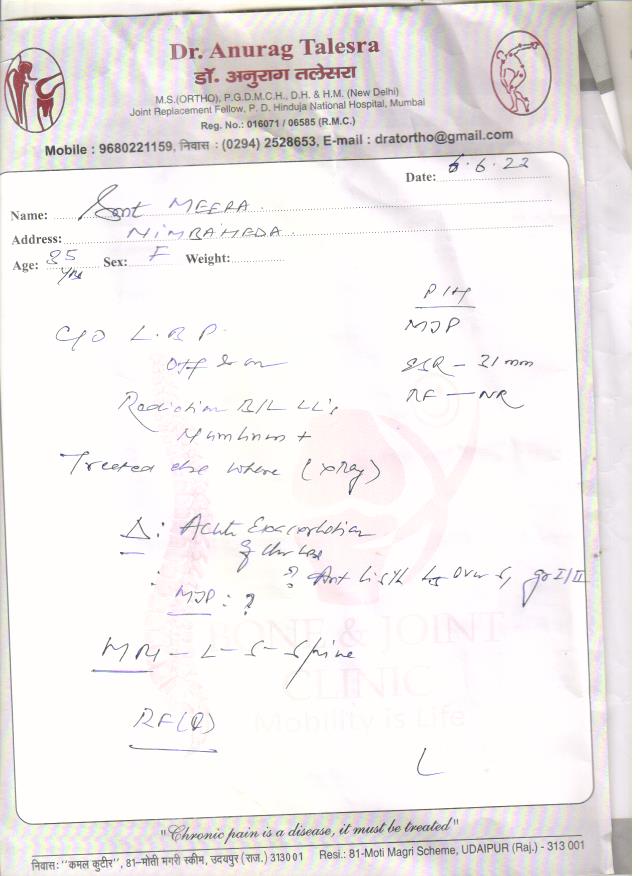 Dr. Anurag Talesra
डॉ. अनुराग तलेसरा
M.S.(ORTHO), P.G.D.M.C.H., D.H. & H.M. (New Delhi)
Joint Replacement Fellow, P. D. Hinduja National Hospital, Mumbai
Reg. No.: 016071 / 06585 (R.M.C.)
Mobile : 9680221159, निवास : (0294) 2528653, E-mail : dratortho@gmail.com
Date: 6.6.22
Name: Smt MEERA
Address: NIMBAHEDA
Age: 35 yrs Sex: F Weight:
P/H
MJP
ESR - 31 mm
RF - NR
C/O L.B.P.
Off & on
Radiation B/L LL's
Numbness +
Treated else where (xray)
Δ: Acute Exacerbation
of
: ? Ant listh L5 over S1 gr I/II
MJP : ?
MRI - L-S-Spine
RF(Q)
BONE & JOINT
CLINIC
Mobility is Life
"Chronic pain is a disease, it must be treated"
निवास: "कमल कुटीर", 81-मोती मगरी स्कीम, उदयपुर (राज.) 313001 Resi.: 81-Moti Magri Scheme, UDAIPUR (Raj.) - 313 001